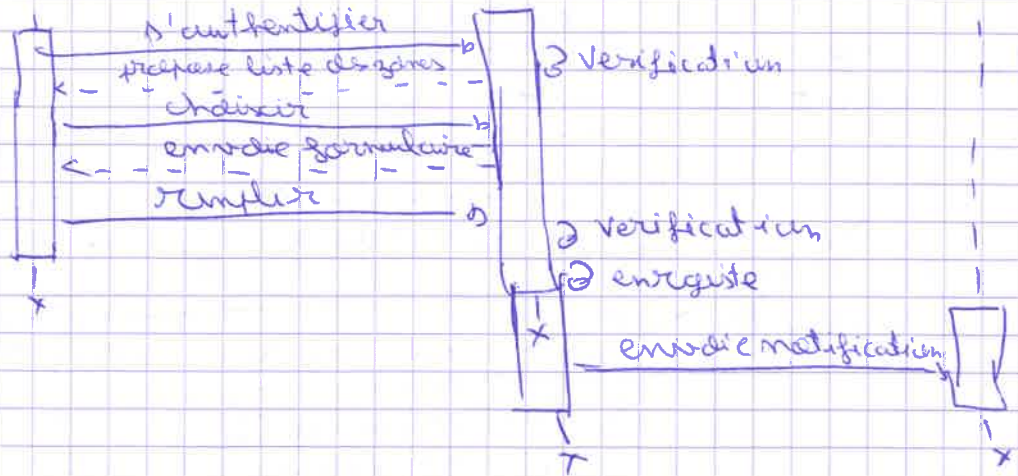 s'authentifier
verification
propose liste des zones
choisir
envoie formulaire
remplir
verification
enrgiste
envoie notification